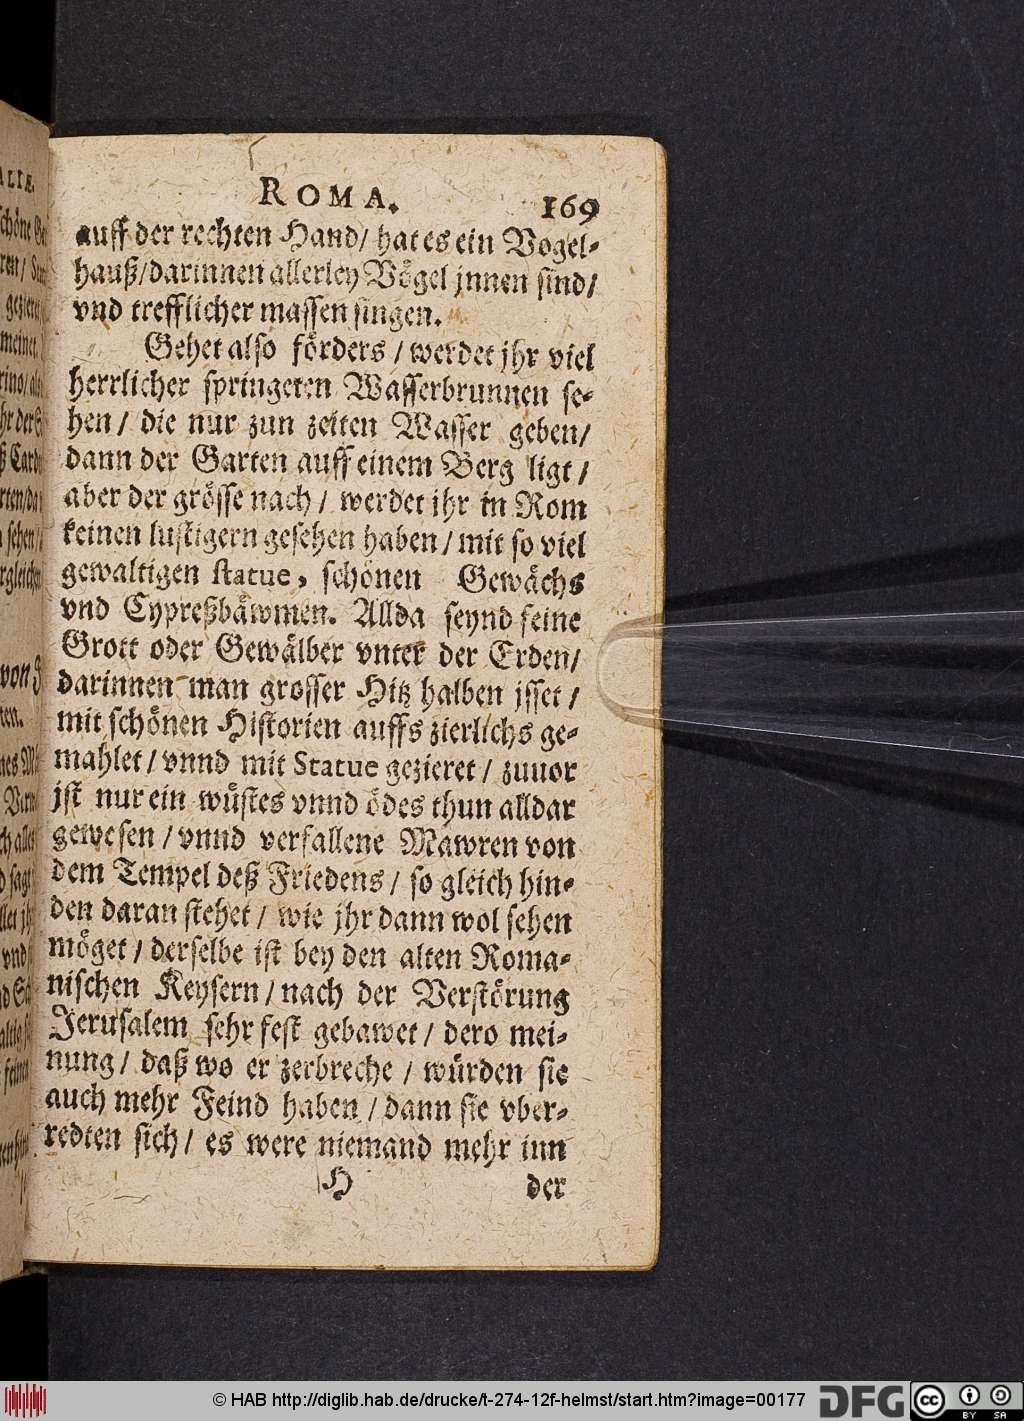 ROMA. 169
auff der rechten Hand/ hat es ein Vogel-
hauß/darinnen allerley Vögel jnnen sind/
vnd trefflicher massen singen.
Gehet also förders / werdet jhr viel
herrlicher springeten Wasserbrunnen se-
hen / die nur zun zeiten Wasser geben/
dann der Garten auff einem Berg ligt /
aber der grösse nach / werdet ihr in Rom
keinen lustigern gesehen haben / mit so viel
gewaltigen statue, schönen Gewächs
vnd Cypreßbäwmen. Allda seynd feine
Grott oder Gewälber vnter der Erden/
darinnen man grosser Hitz halben jsset /
mit schönen Historien auffs zierlichs ge-
mahlet / vnnd mit Statue gezieret / zuuor
jst nur ein wüstes vnnd ödes thun alldar
gewesen / vnnd verfallene Mawren von
dem Tempel deß Friedens / so gleich hin-
den daran stehet / wie jhr dann wol sehen
möget / derselbe ist bey den alten Roma-
nischen Keysern / nach der Verstörung
Jerusalem sehr fest gebawet / dero mei-
nung / daß wo er zerbreche / würden sie
auch mehr Feind haben / dann sie vber-
redten sich / es were niemand mehr inn
H der
© HAB http://diglib.hab.de/drucke/t-274-12f-helmst/start.htm?image=00177
DFG cc BY SA